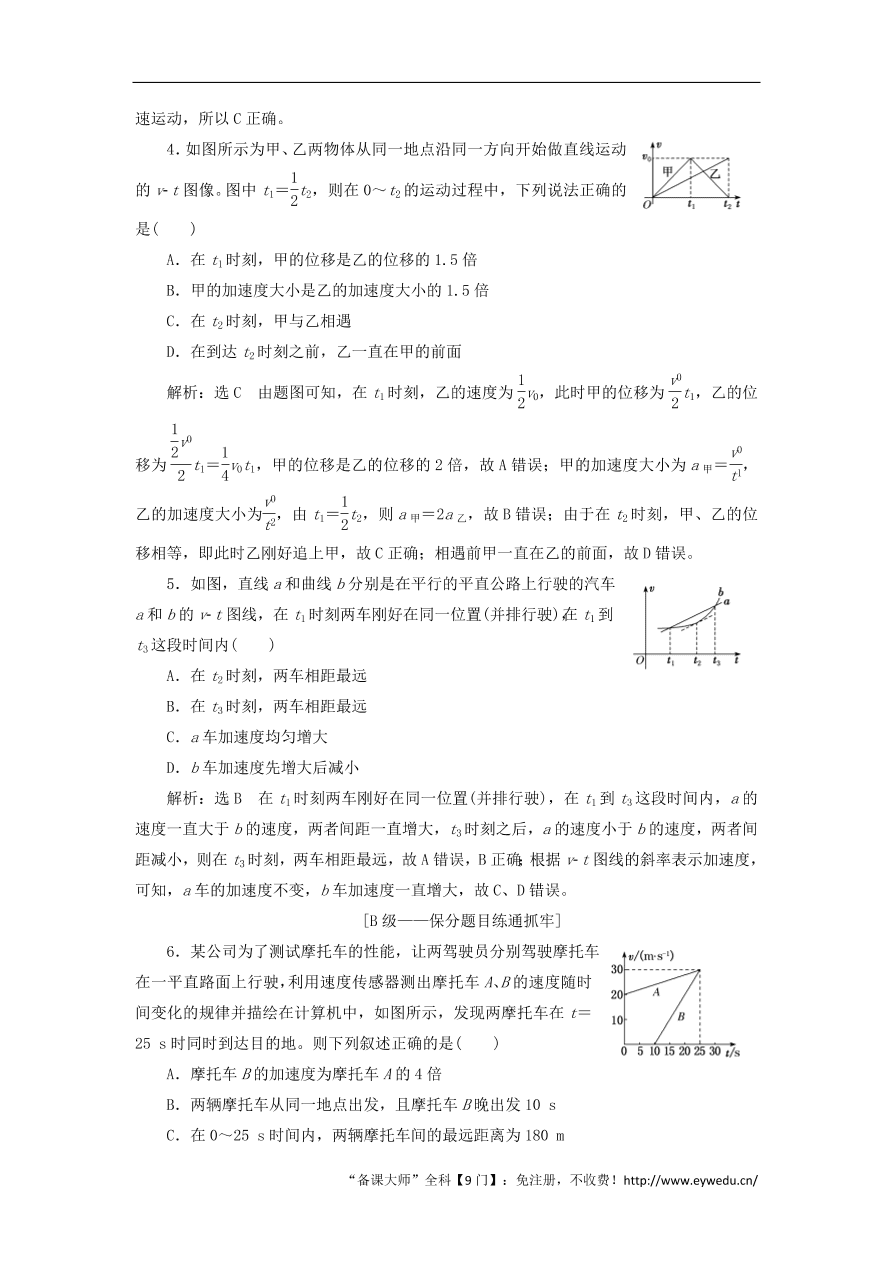 速运动，所以 C 正确。
4．如图所示为甲、乙两物体从同一地点沿同一方向开始做直线运动
的 v­t 图像。图中 t₁＝\frac{1}{2}t₂，则在 0～t₂ 的运动过程中，下列说法正确的
是(　　)
v
v₀
甲
乙
O
t₁
t₂
t
A．在 t₁ 时刻，甲的位移是乙的位移的 1.5 倍
B．甲的加速度大小是乙的加速度大小的 1.5 倍
C．在 t₂ 时刻，甲与乙相遇
D．在到达 t₂ 时刻之前，乙一直在甲的前面
解析：选 C　由题图可知，在 t₁ 时刻，乙的速度为 \frac{1}{2}v₀，此时甲的位移为 \frac{v0}{2}t₁，乙的位
移为 \frac{\frac{1}{2}v0}{2}t₁＝\frac{1}{4}v₀t₁，甲的位移是乙的位移的 2 倍，故 A 错误；甲的加速度大小为 a 甲＝\frac{v0}{t1}，
乙的加速度大小为\frac{v0}{t2}，由 t₁＝\frac{1}{2}t₂，则 a 甲＝2a 乙，故 B 错误；由于在 t₂ 时刻，甲、乙的位
移相等，即此时乙刚好追上甲，故 C 正确；相遇前甲一直在乙的前面，故 D 错误。
5．如图，直线 a 和曲线 b 分别是在平行的平直公路上行驶的汽车
a 和 b 的 v­t 图线，在 t₁ 时刻两车刚好在同一位置(并排行驶)，在 t₁ 到
t₃ 这段时间内(　　)
v
b
a
O
t₁
t₂
t₃
t
A．在 t₂ 时刻，两车相距最远
B．在 t₃ 时刻，两车相距最远
C．a 车加速度均匀增大
D．b 车加速度先增大后减小
解析：选 B　在 t₁ 时刻两车刚好在同一位置(并排行驶)，在 t₁ 到 t₃ 这段时间内，a 的
速度一直大于 b 的速度，两者间距一直增大，t₃ 时刻之后，a 的速度小于 b 的速度，两者间
距减小，则在 t₃ 时刻，两车相距最远，故 A 错误，B 正确；根据 v­t 图线的斜率表示加速度，
可知，a 车的加速度不变，b 车加速度一直增大，故 C、D 错误。
[B 级——保分题目练通抓牢]
6．某公司为了测试摩托车的性能，让两驾驶员分别驾驶摩托车
在一平直路面上行驶，利用速度传感器测出摩托车 A、B 的速度随时
间变化的规律并描绘在计算机中，如图所示，发现两摩托车在 t＝
25 s 时同时到达目的地。则下列叙述正确的是(　　)
v/(m·s⁻¹)
30
20
10
A
B
0 5 10 15 20 25 30 t/s
A．摩托车 B 的加速度为摩托车 A 的 4 倍
B．两辆摩托车从同一地点出发，且摩托车 B 晚出发 10 s
C．在 0～25 s 时间内，两辆摩托车间的最远距离为 180 m
“备课大师”全科【9 门】：免注册，不收费！http://www.eywedu.cn/